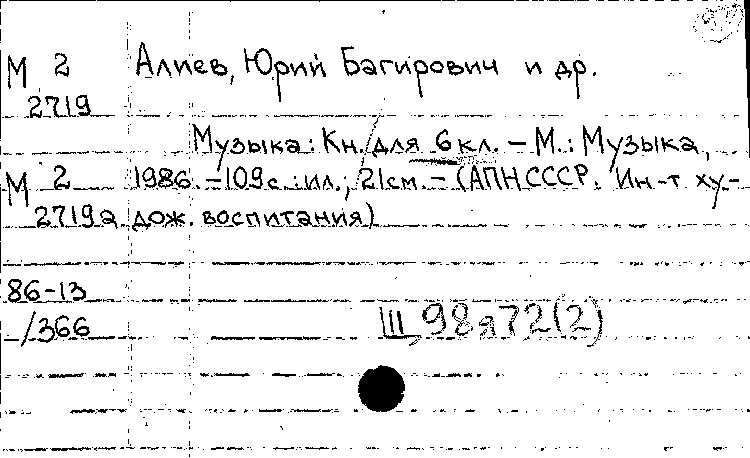 М 2 Алиев, Юрий Багирович и др.
2719
Музыка: Кн. для 6 кл. – М.: Музыка,
М 2 1986. – 109 с.: ил.; 21 см. – (АПН СССР. Ин-т ху-
2719а дож. воспитания)
86-13
/366 Щ, 98я72(2)